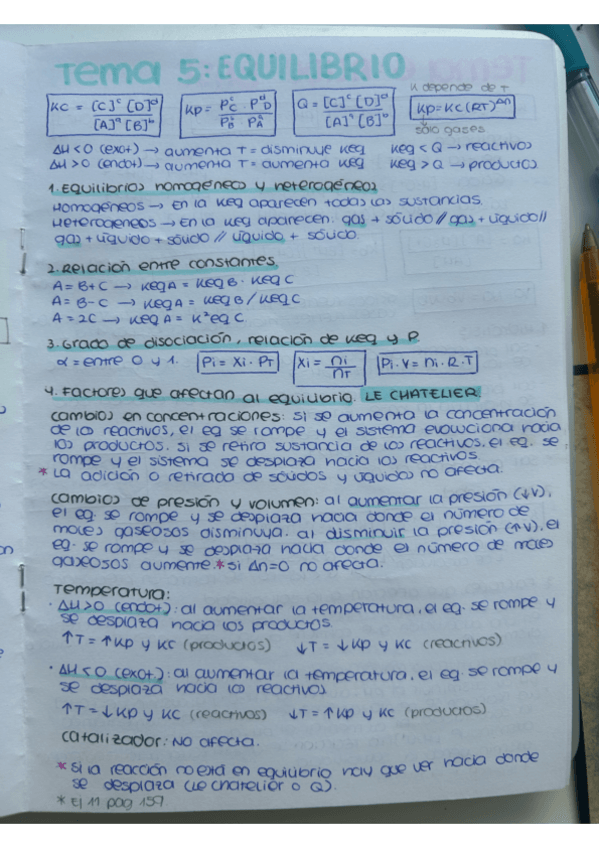 Tema 5: EQUILIBRIO
K depende de T
Kc = [C]^c [D]^d / [A]^a [B]^b
Kp = P_C^c · P_D^d / P_B^b P_A^a
Q = [C]^c [D]^d / [A]^a [B]^b
Kp = Kc (RT)^Δn
sólo gases
ΔH < 0 (exot) → aumenta T = disminuye Keq Keq < Q → reactivos
ΔH > 0 (endot) → aumenta T = aumenta Keq Keq > Q → productos
1. Equilibrios homogéneos y heterogéneos
Homogéneos → En la Keq aparecen todas las sustancias.
Heterogeneos → En la Keq aparecen: gas + sólido // gas + líquido //
gas + líquido + sólido // líquido + sólido.
2. Relación entre constantes.
A = B + C → Keq A = Keq B · Keq C
A = B - C → Keq A = Keq B / Keq C
A = 2C → Keq A = K² eq C
3. Grado de disociación, relación de Keq y P.
α = entre 0 y 1. Pi = Xi · PT Xi = ni / nT Pi · V = ni · R · T
4. Factores que afectan al equilibrio. LE CHATELIER.
Cambios en concentraciones: si se aumenta la concentración
de los reactivos, el eq se rompe y el sistema evoluciona hacia
los productos. Si se retira sustancia de los reactivos, el eq. se
rompe y el sistema se desplaza hacia los reactivos.
* La adición o retirada de sólidos y líquidos no afecta.
Cambios de presión y volumen: al aumentar la presión (↓V),
el eq. se rompe y se desplaza hacia donde el número de
moles gaseosos disminuya. al disminuir la presión (↑V), el
eq. se rompe y se desplaza hacia donde el número de moles
gaseosos aumente. * si Δn=0 no afecta.
Temperatura:
· ΔH > 0 (endot): al aumentar la temperatura, el eq. se rompe y
se desplaza hacia los productos.
↑T = ↑Kp y Kc (productos) ↓T = ↓Kp y Kc (reactivos)
· ΔH < 0 (exot): al aumentar la temperatura, el eq. se rompe y
se desplaza hacia los reactivos
↑T = ↓Kp y Kc (reactivos) ↓T = ↑Kp y Kc (productos)
Catalizador: No afecta.
* Si la reacción no está en equilibrio hay que ver hacia donde
se desplaza (Le chatelier o Q).
* Ej 11 pag 159